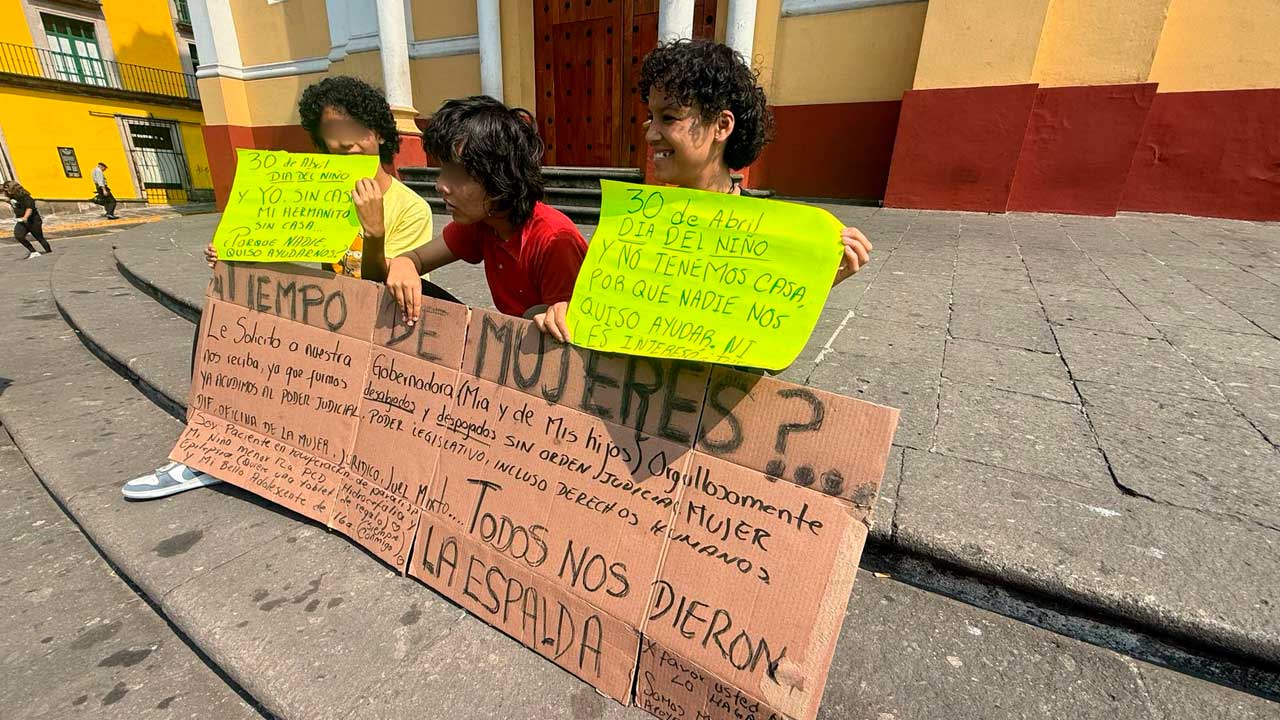 30 de Abril
DIA DEL NIÑO
Y YO. SIN CASA
MI HERMANITO
SIN CASA...
¿PORQUE NADIE
QUISO AYUDARNOS?
30 de Abril
DIA DEL NIÑO
Y NO TENEMOS CASA,
POR QUE NADIE NOS
QUISO AYUDAR. NI
LES INTERESÓ
TIEMPO DE MUJERES?...
Le Solicito a nuestra Gobernadora (Mia y de Mis hijos) Orgullosamente MUJER
nos reciba, ya que fuimos desalojados y despojados SIN ORDEN JUDICIAL
YA ACUDIMOS AL PODER JUDICIAL, PODER LEGISLATIVO, INCLUSO DERECHOS HUMANOS
DIF, OFICINA DE LA MUJER, JURIDICO, Juez Mixto....
TODOS NOS DIERON
LA ESPALDA
Soy Paciente en recuperación de
Mi Niño menor PCD Hidrocefalia y
Epilepsia (Quiere una tablet de regalo)
y Mi Bello Adolescente de 16a (Siempre Conmigo)
X favor usted
LO HAGA
SOMOS